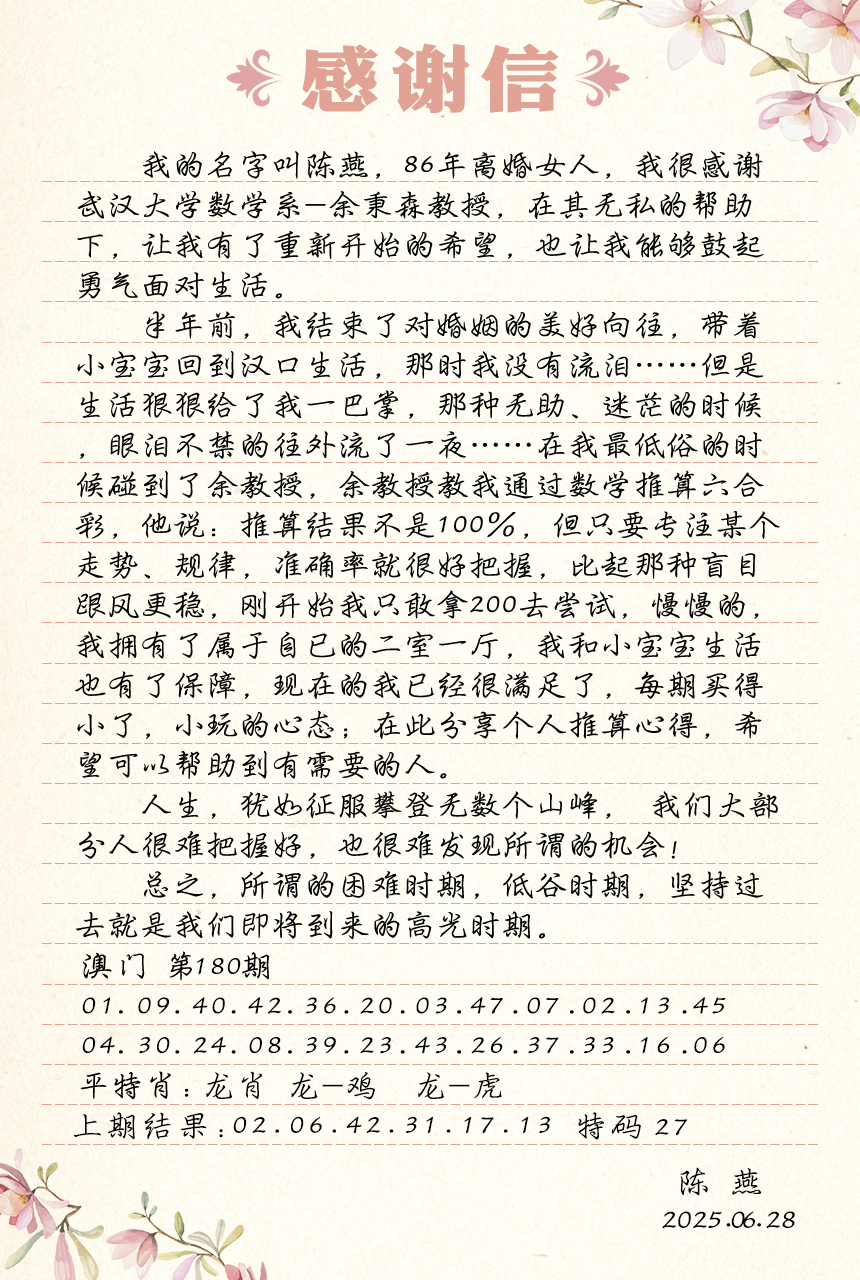 感谢信
我的名字叫陈燕，86年离婚女人，我很感谢
武汉大学数学系—余秉森教授，在其无私的帮助
下，让我有了重新开始的希望，也让我能够鼓起
勇气面对生活。
半年前，我结束了对婚姻的美好向往，带着
小宝宝回到汉口生活，那时我没有流泪……但是
生活狠狠给了我一巴掌，那种无助、迷茫的时候
，眼泪不禁的往外流了一夜……在我最低俗的时
候碰到了余教授，余教授教我通过数学推算六合
彩，他说：推算结果不是100%，但只要专注某个
走势、规律，准确率就很好把握，比起那种盲目
跟风更稳，刚开始我只敢拿200去尝试，慢慢的，
我拥有了属于自已的二室一厅，我和小宝宝生活
也有了保障，现在的我已经很满足了，每期买得
小了，小玩的心态；在此分享个人推算心得，希
望可以帮助到有需要的人。
人生，犹如征服攀登无数个山峰， 我们大部
分人很难把握好，也很难发现所谓的机会！
总之，所谓的困难时期，低谷时期，坚持过
去就是我们即将到来的高光时期。
澳门 第180期
01.09.40.42.36.20.03.47.07.02.13.45
04.30.24.08.39.23.43.26.37.33.16.06
平特肖：龙肖 龙—鸡 龙—虎
上期结果：02.06.42.31.17.13 特码 27
陈 燕
2025.06.28